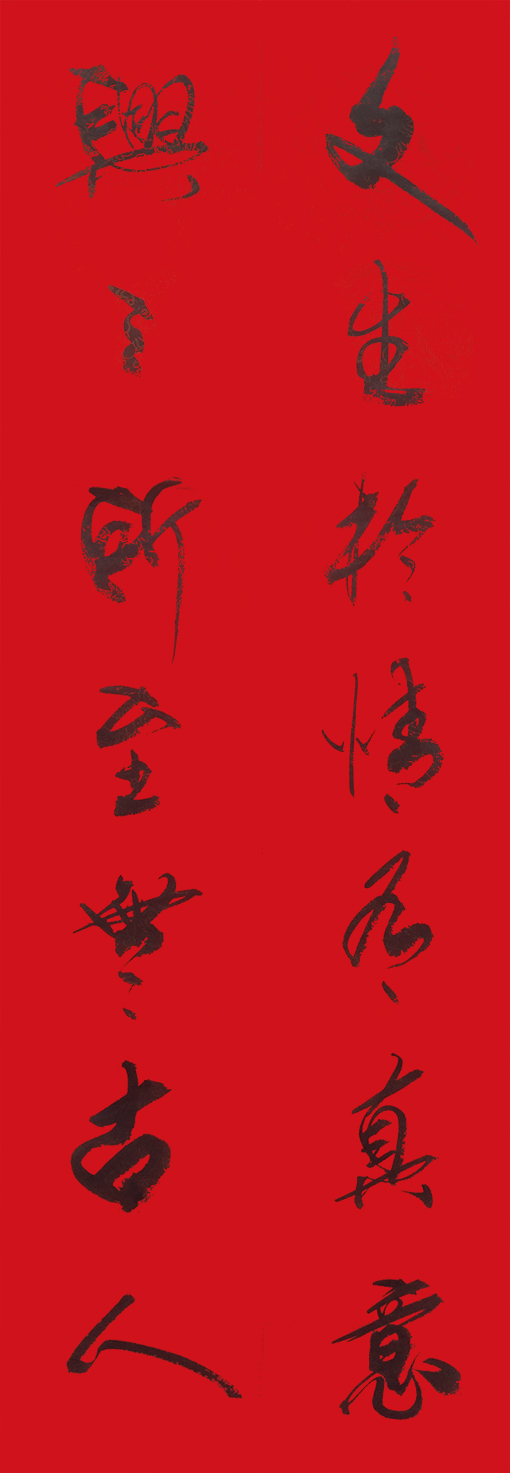 文生於情有真意
興之所至無古人